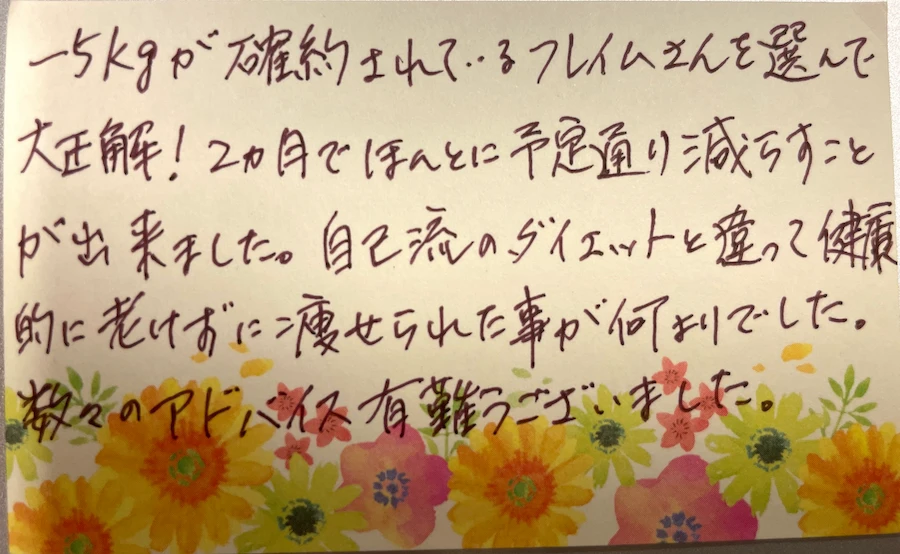 -5kgが確約されているフレイムさんを選んで
大正解!2カ月でほんとに予定通り減らすこと
が出来ました。自己流のダイエットと違って健康
的に老けずに痩せられた事が何よりでした。
数々のアドバイス有難うございました。